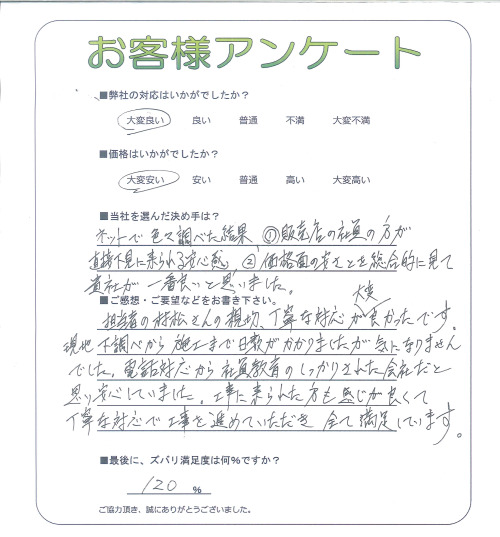 お客様アンケート
■弊社の対応はいかがでしたか？
大変良い 良い 普通 不満 大変不満
■価格はいかがでしたか？
大変安い 安い 普通 高い 大変高い
■当社を選んだ決め手は？
ネットで色々調べた結果 ①販売店の社員の方が
直接下見に来られる安心感 ②価格面の安さとを総合的に見て
貴社が一番良いと思いました。
■ご感想・ご要望などをお書き下さい。
担当者の村松さんの親切、丁寧な対応が大変良かったです。
現地下調べから施工まで日数がかかりましたが気になりません
でした。電話対応から社員教育のしっかりされた会社だと
思い安心していました。工事に来られた方も感じが良くて
丁寧な対応で工事を進めていただき全て満足しています。
■最後に、ズバリ満足度は何%ですか？
120 %
ご協力頂き、誠にありがとうございました。